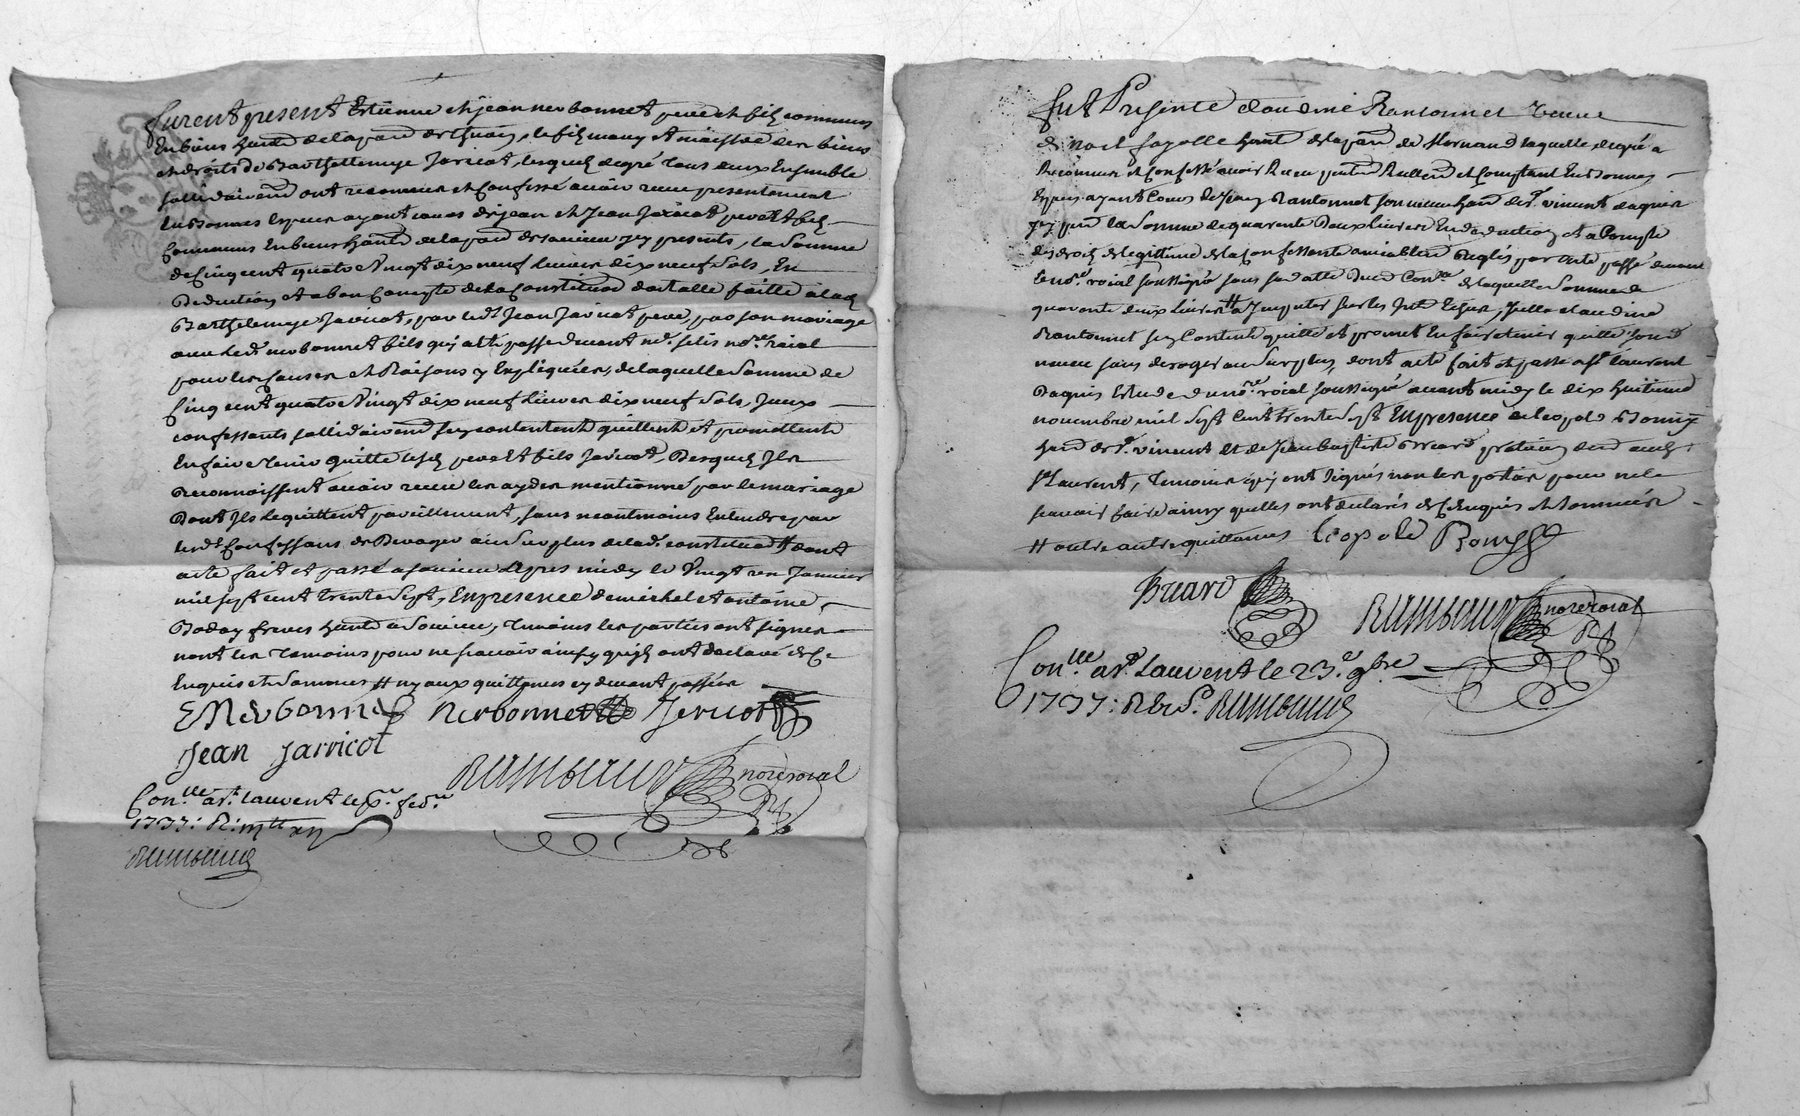 furent present Estienne et jean nesbonnet pere et fils communs
en biens habts de la parr de Thurins, le fils mary et maistre des biens
et droits de Barthellemye Jaricot, lesquels de gré tous deux Ensemble
sollidairemt ont reconneu et Confessé avoir receu presentement
en bonnes Especes ayant cours de jean et Jean Jaricot pere et fils
Communs En biens habts de la parr de Soucieu icy presents, la Somme
de Cinq cent quatre Vingt dix neuf livres dix neuf Sols, En
Deduction et a bon Compte de la Constitution dotalle faitte a lad
Barthelemye Jaricot, par led. Jean Jaricot pere, par son mariage
avec led. nesbonnet fils qui a été passé devant me. no.re roial
pour les causes et Raisons y Expliquées, de laquelle Somme de
Cinq cent quatre Vingt dix neuf livres dix neuf Sols, Iceux
confessants sollidairemt se contentent quittent et promettent
En faire tenir quitte lesd pere Et fils Jaricot, Desquels Ils
Reconnoissent avoir receu les aydes mentionné par le mariage
Dont Ils le quittent pareillement, sans neantmoins Entendre par
lesd. Confessans de Deroger au Surplus de lad. constitution # dont
acte fait et passé a soucieu apres midy le Vingt janvier
mil sept cent trente sept, En presence de michel et antoine
Boday freres habts a Soucieu, temoins les parties ont signer
non les temoins pour ne scavoir ainsy quils ont declaré de Ce
Enquis et Sommes # ny aux quittances cy devant passées
E Nesbonnet Nesbonnet Jericot
Jean jarricot
no.re roial
Con.lle a St. laurent le p.er fev.er
1737: R:
fut Presente Claudine Rantonnet Veuve
de noel fayolle habt de la parr de Mornand laquelle de gré a
Reconneu et Confessé avoir Receu presentemt Reellemt et Comptant En bonnes
Especes ayant Cours de Jean Rantonnet son neveu habt de St. vincent dagnier
icy prnt la Somme de quarante Deux livres En deduction et a Compte
des droits de legittime de la confessante amiablemt Reglés par acte passé devant
le no.re roial soussigné sous sa datte Deue Con.lle de laquelle Somme de
quarante deux livres # a Imputer sur les fruits Echeus, Icelle claudine
Rantonnet se Contente quitte et promet En faire tenir quitte sond
neveu sans deroger au Surplus, dont acte fait et passé a St laurent
Dagnis Estude du no.re roial soussigné avant midy le dix huitieme
novembre mil Sept Cent trente Sept En presence de leopold Bomy
habt de St. vincent et de Jean baptiste Briard praticien dud
St laurent, temoins qui ont signés non les parties pour ne le
scavoir faire ainsy quelles ont declarés de Ce Enquis et Sommées
# outre autre quittances leopold Bomy
Briard
no.re roial
Con.lle a St. laurent le 23.e 9bre
1737: R